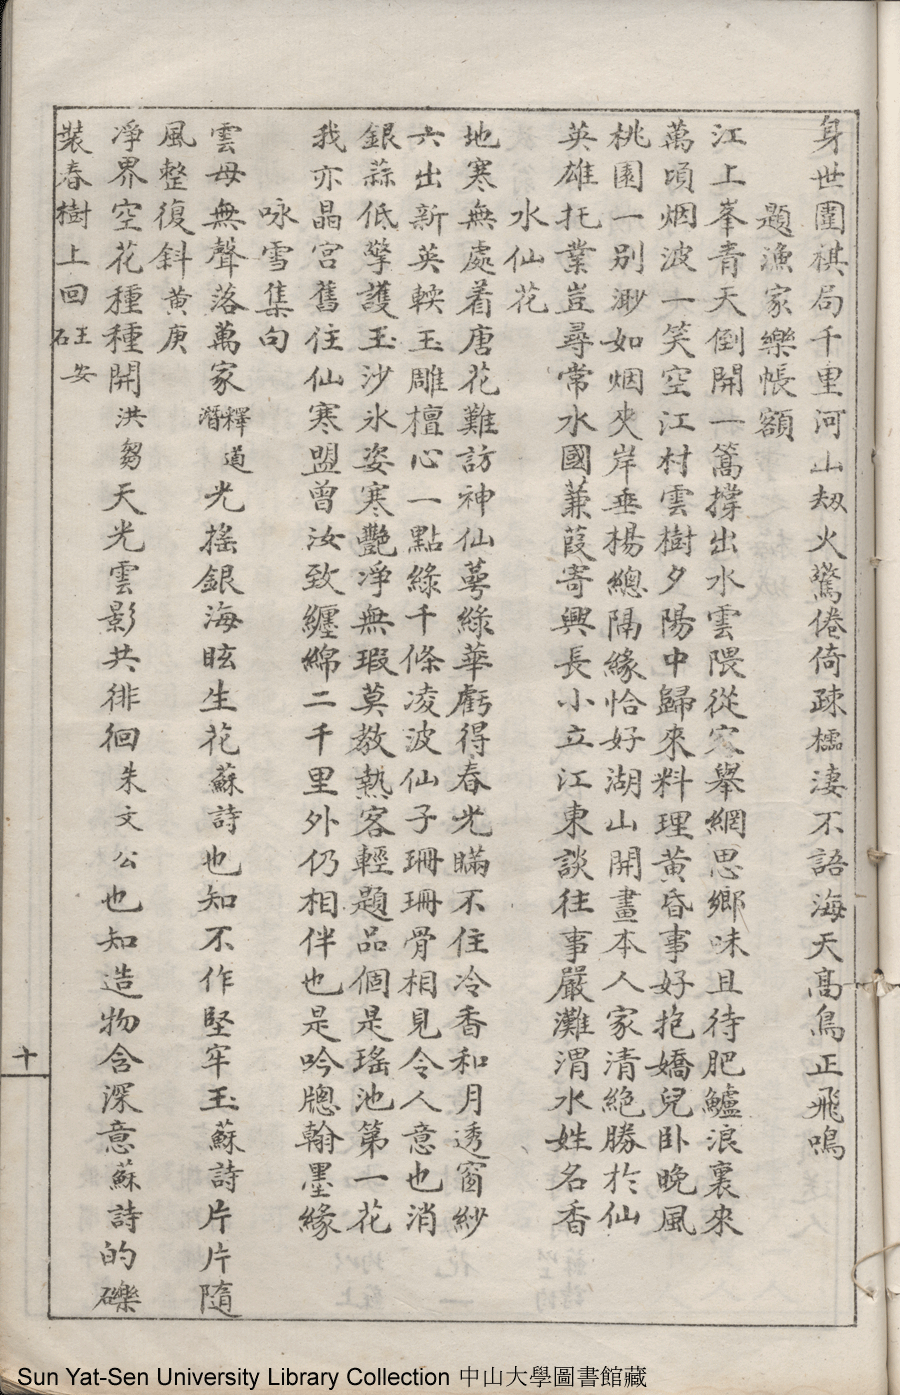 身世圍棋局千里河山刼火驚倦倚疎櫺淒不語海天高鳥正飛鳴
題漁家樂帳額
江上峯青天倒開一篙撐出水雲隈從容舉網思鄉味且待肥鱸浪裏來
萬頃烟波一笑空江村雲樹夕陽中歸來料理黃昏事好抱嬌兒卧晚風
桃園一别渺如烟夾岸垂楊總隔緣恰好湖山開畫本人家清絶勝於仙
英雄托業豈尋常水國蒹葭寄興長小立江東談往事嚴灘渭水姓名香
水仙花
地寒無處着唐花難訪神仙萼綠華虧得春光瞞不住冷香和月透窗紗
六出新英輭玉雕檀心一點綠千條凌波仙子珊珊骨相見令人意也消
銀蒜低擎護玉沙氷姿寒艷凈無瑕莫教熱客輕題品個是瑤池第一花
我亦晶宮舊住仙寒盟曾汝致纏綿二千里外仍相伴也是吟牕翰墨緣
咏雪集句
雲母無聲落萬家釋道潛光搖銀海眩生花蘇詩也知不作堅牢玉蘇詩片片隨
風整復斜黃庚
凈界空花種種開洪芻天光雲影共徘徊朱文公也知造物含深意蘇詩的礫
裝春樹上回王安石
十
Sun Yat-Sen University Library Collection 中山大學圖書館藏